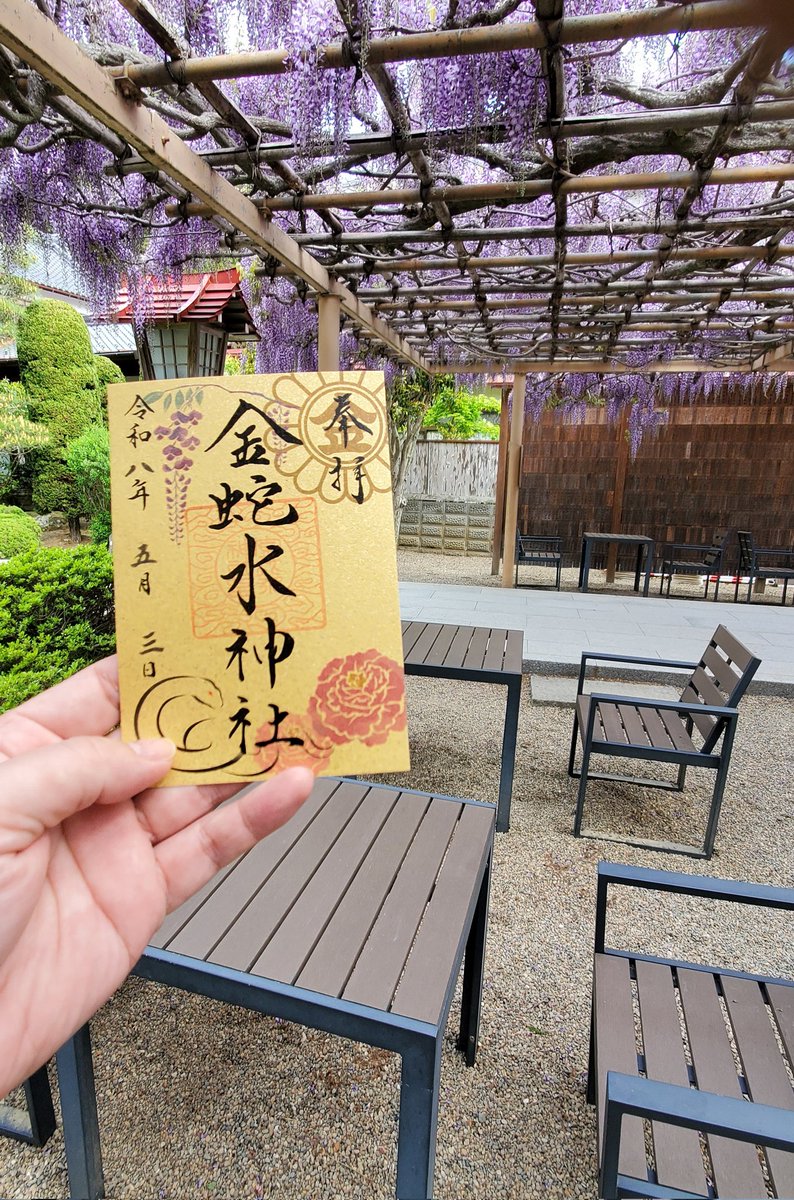 奉拝
金蛇水神社
令和八年 五月 三日